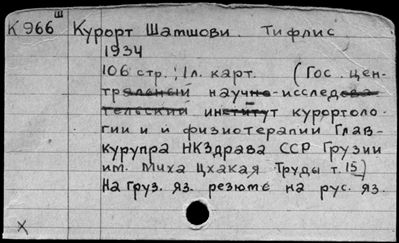 Ш
К 966 Курорт Шатшови. Тифлис
1934
106 стр.; 1л. карт. (Гос. цен-
тральный научно-исследова-
тельский институт курортоло-
гии и й физиотерапии Глав-
курупра НКЗдрава ССР Грузии
им. Миха Цхакая Труды т. 15)
На груз. яз. резюме на рус. яз.
X